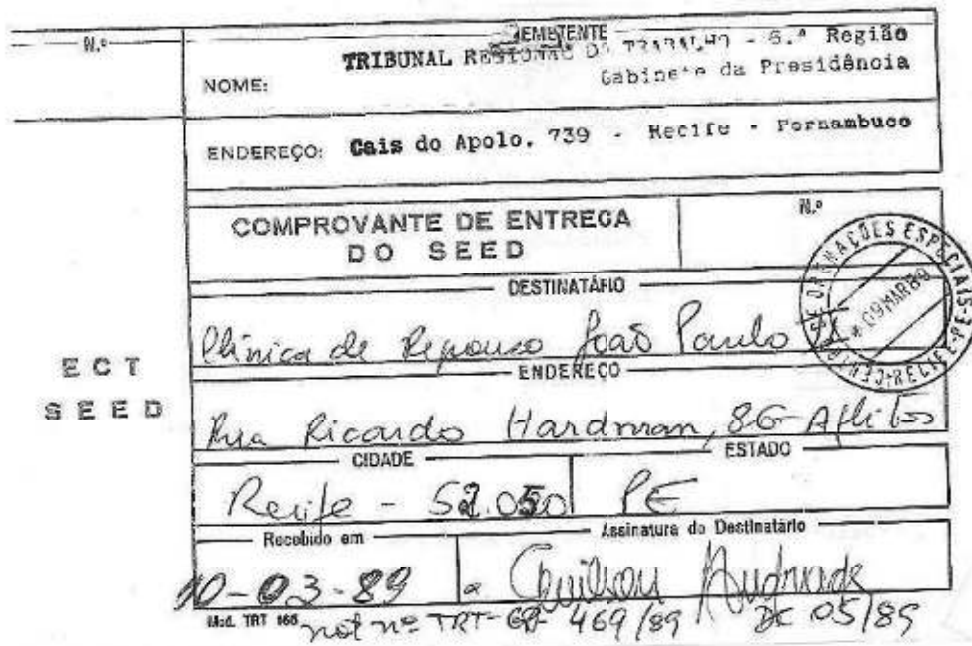 N.º
REMETENTE
NOME: TRIBUNAL REGIONAL DO TRABALHO - 6.ª Região
Gabinete da Presidência
ENDEREÇO: Cais do Apolo, 739 - Recife - Pernambuco
COMPROVANTE DE ENTREGA
DO SEED
N.º
DESTINATÁRIO
Clínica de Repouso João Paulo II
ENDEREÇO
Rua Ricardo Hardman, 86-Aflitos
CIDADE
ESTADO
Recife - 52.050
PE
Recebido em
Assinatura do Destinatário
10-03-89
Andrade
Mod. TRT 166
not nº TRT- 469/89 DC 05/89
ECT
SEED
ESPECIAIS
09 MAR 89